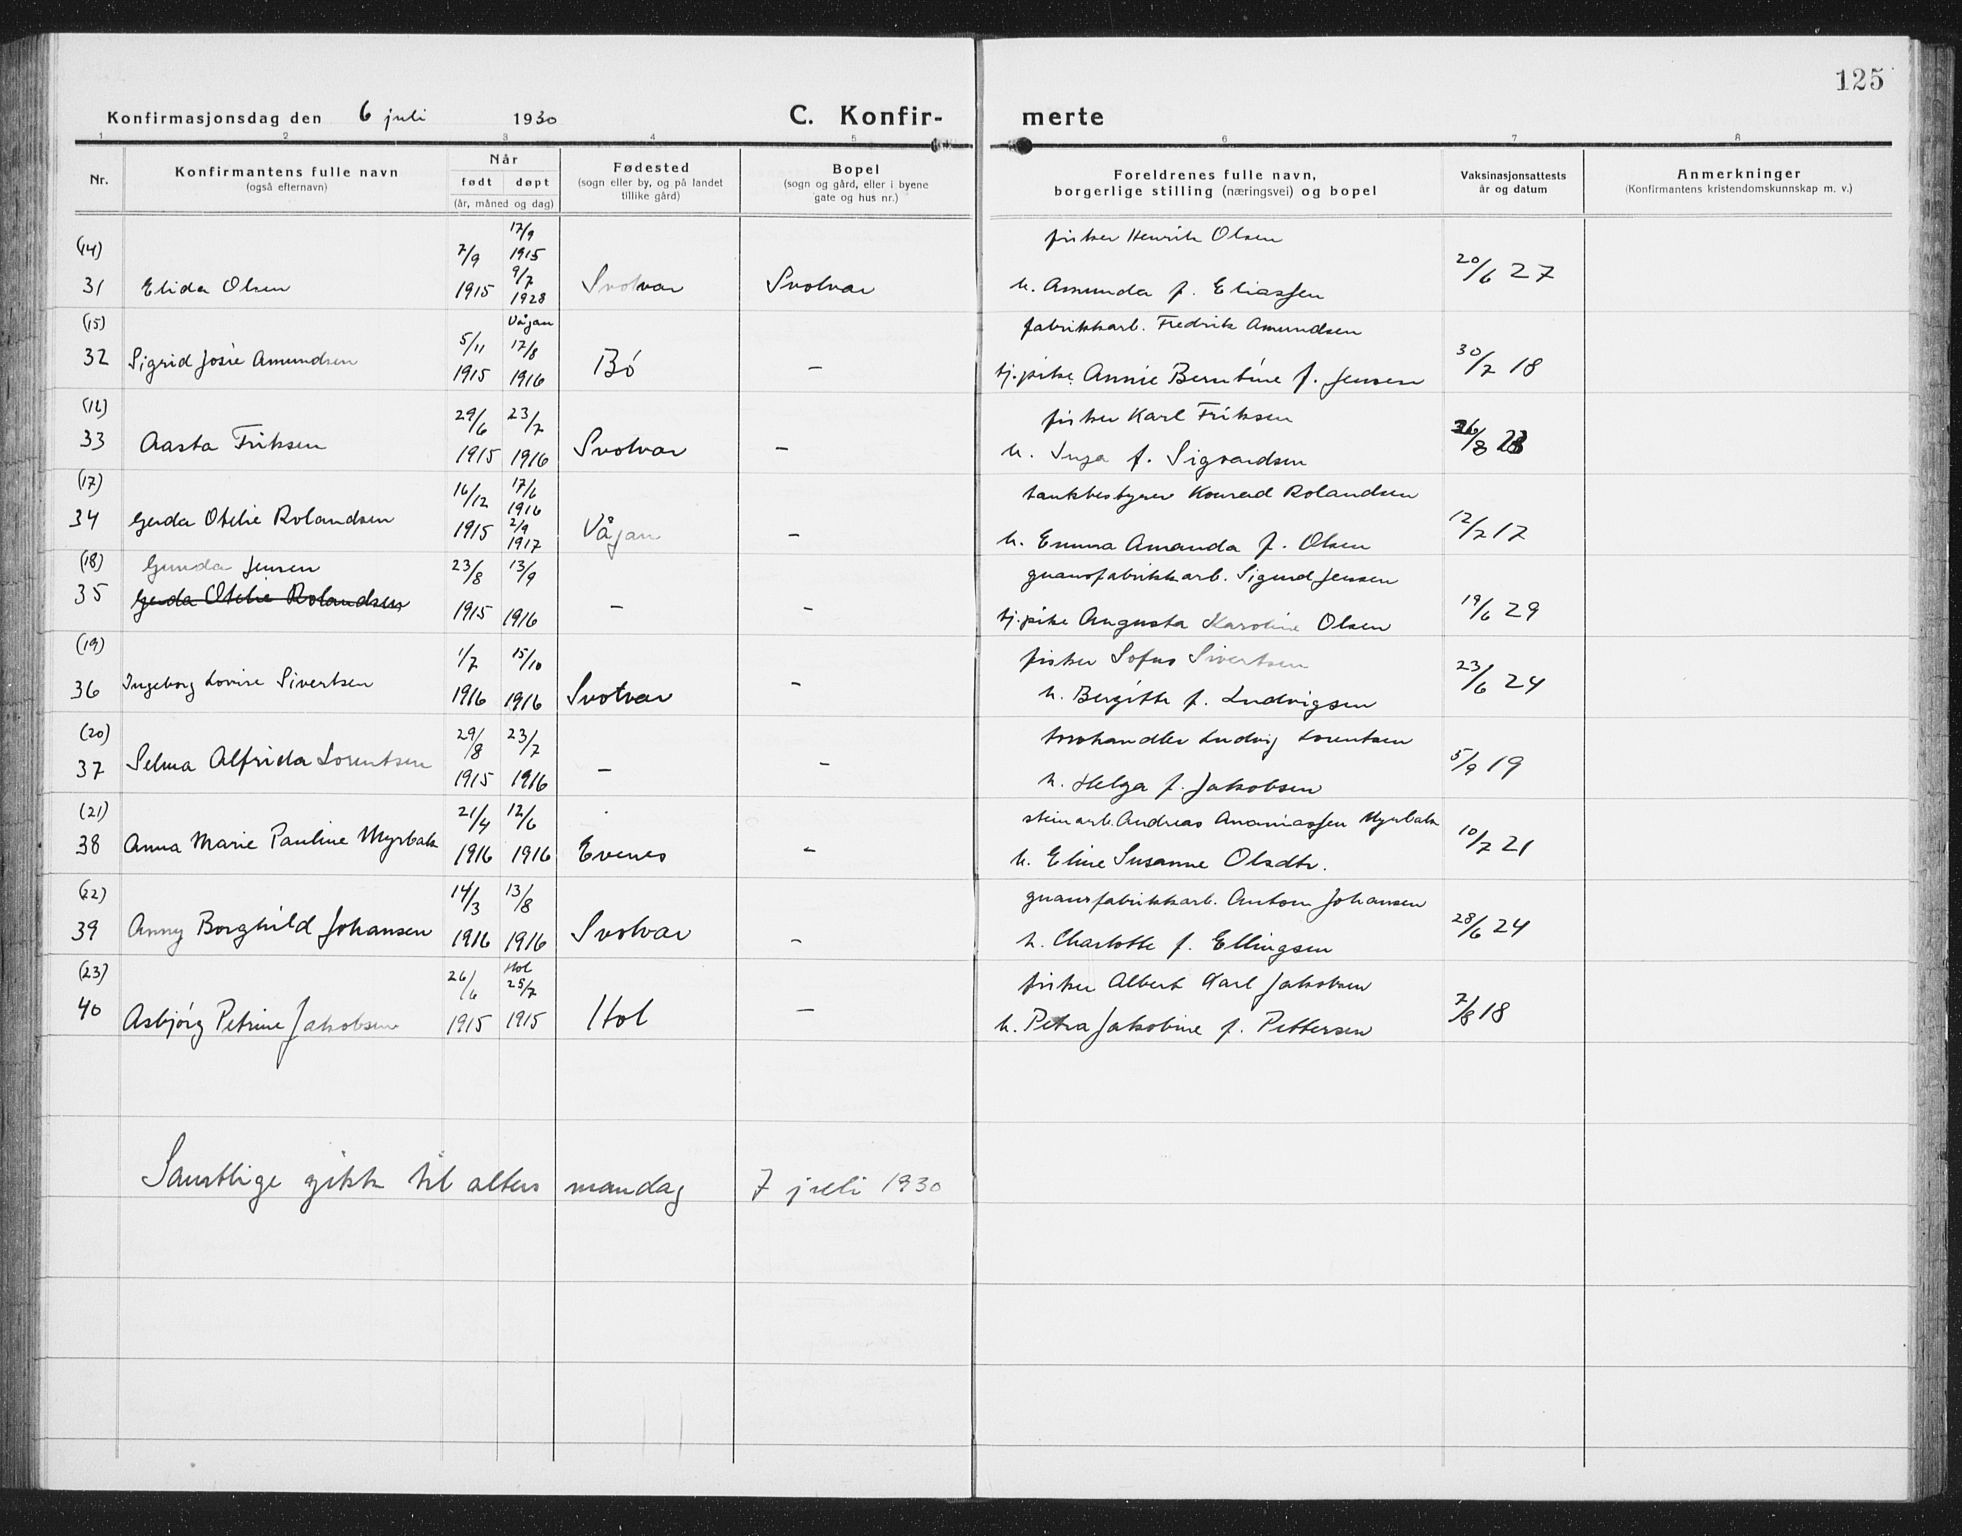 125
Konfirmasjonsdag den 6 juli 1930 C. Konfir- merte
1 2 3 4 5 6 7 8
Nr.
Konfirmantens fulle navn
(også efternavn)
Når
født døpt
(år, måned og dag)
Fødested
(sogn eller by, og på landet
tillike gård)
Bopel
(sogn og gård, eller i byene
gate og hus nr.)
Foreldrenes fulle navn,
borgerlige stilling (næringsvei) og bopel
Vaksinasjonsattests
år og datum
Anmerkninger
(Konfirmantens kristendomskunnskap m. v.)
(14) 7/9 17/9 1915 fisker Henrik Olsen
31 Elida Olsen 1915 9/7 1928 Svolvær Svolvær h. Amunda f. Eliassen 20/6 27
(15) 5/11 Vågan 17/8 fabrikkarb. Fredrik Amundsen
32 Sigrid Josie Amundsen 1915 1916 Bö - tj.pike Annie Berntine f. Jensen 30/7 18
(16) 29/6 23/7 fisker Karl Friksen
33 Aasta Friksen 1915 1916 Svolvær - h. Inga f. Sigvardsen 26/8
(17) 16/12 17/6 1916 tankbestyrer Konrad Rolandsen
34 Gerda Otelie Rolandsen 1915 2/9 1917 Vågan - h. Emma Amanda f. Olsen 12/7 17
(18) Gunda Jensen 23/8 13/9 guanofabrikkarb. Sigurd Jensen
35 Gerda Otelie Rolandsen 1915 1916 - - tj.pike Augusta Karoline Olsen 19/6 29
(19) 1/7 15/10 fisker Sofus Sivertsen
36 Ingeborg Lovise Sivertsen 1916 1916 Svolvær - h. Bergitte f. Ludvigsen 23/6 24
(20) 29/8 23/7 Ludvig Lorentsen
37 Selma Alfrida Lorentsen 1915 1916 - - h. Helga f. Jakobsen 5/9 19
(21) 21/4 12/6 steinarb. Andreas Ananiassen Myrbak
38 Anna Marie Pauline Myrbak 1916 1916 Evenes - h. Eline Susanne Olsdtr. 10/7 21
(22) 14/3 13/8 guanofabrikkarb. Anton Johansen
39 Anny Borghild Johansen 1916 1916 Svolvær - h. Charlotte f. Ellingsen 28/6 24
(23) 26/6 Hol 25/7 fisker Albert Karl Jakobsen
40 Asbjörg Petrine Jakobsen 1915 1915 Hol - h. Petra Jakobine f. Pettersen 7/8 18
Samtlige gikk til alters mandag 7 juli 1930